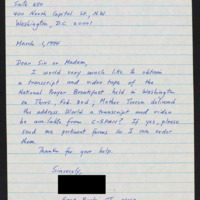 Suite 650
400 North Capitol St., N.W.
Washington, D.C. 20001
March 1, 1994
Dear Sir or Madam,
I would very much like to obtain
a transcript and video tape of the
National Prayer Breakfast held in Washington
on Thurs., Feb. 3rd, Mother Teresa delivered
the address. Would a transcript and video
be available from C-SPAN? If yes, please
send me pertinent forms so I can order
them.
Thanks for your help.
Sincerely,